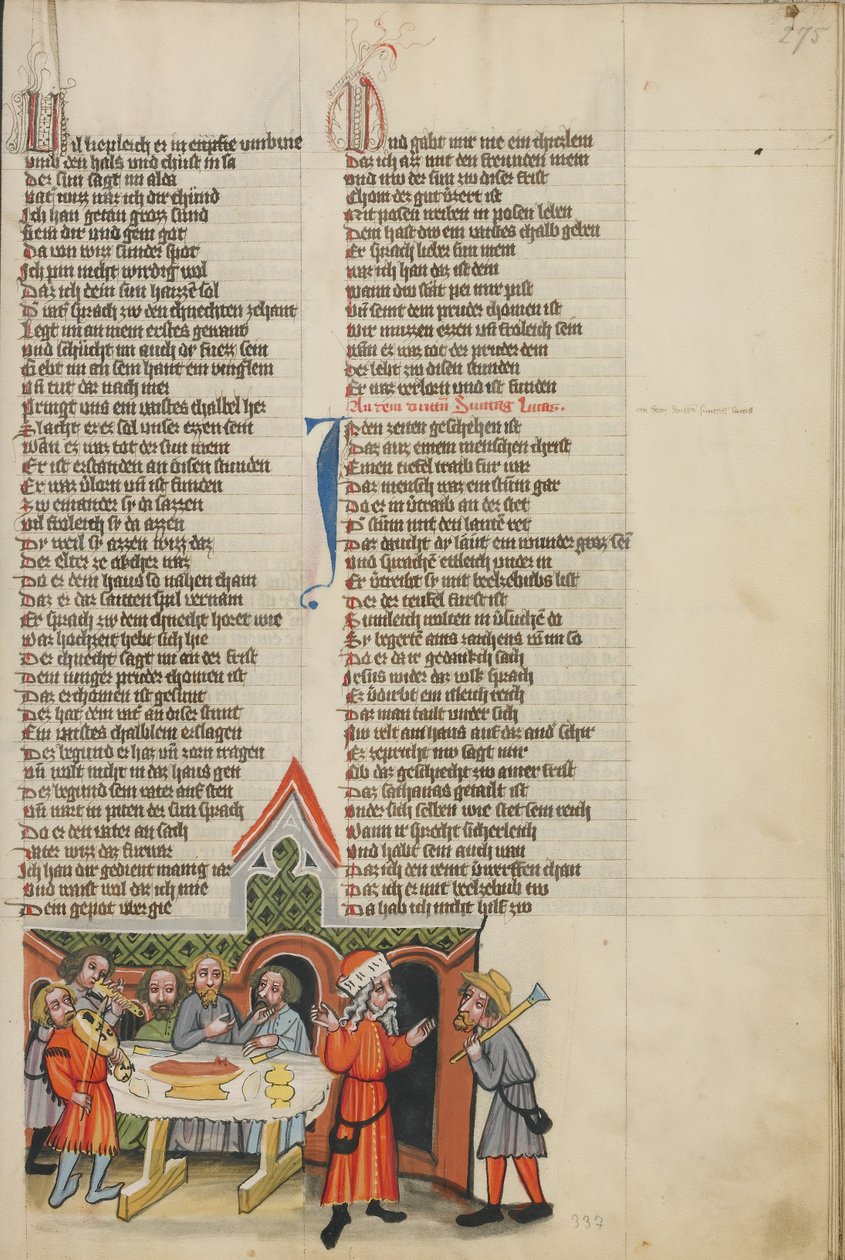 275
Vil liepleich er in enpfie umbvie
umb den hals und chust in sa
Der sun sagt im alda
vat wizz was ich dir chünd
Ich han getan grozz sünd
hem dir und gein got
Da von wizz sunder spot
Ich pin nicht wirdig wol
Daz ich dein sun haizze sol
D vat sprach zw den chnechten zehant
Legt im an mein erstes gewant
und schücht im auch dy fuezz sein
Gebt im an sein hant ein vinglein
Vn tut dar nach mer
Pringt uns ein vaistes chalbel her
Slacht er ez sol unser ezzen sein
Wan ez waz tot der sun mein
Er ist erstanden an disen stunden
Er waz vlorn un ist funden
Zw einander sy da sazzen
vil froleich sy da azzen
Dy weil sy azzen wizz daz
Der elter ze akcher waz
Do er dem haus so nahen cham
Daz er daz saitten spil vernam
Er sprach zw dem chnecht horet wie
Waz hochzeit hebt sich hie
Der chnecht sagt im an der frist
Dein iunger pruder chomen ist
Daz er chomen ist gesunt
Dez hat dein vat an diser stunt
Ein vaistes chalblein erslagen
Dez begund er haz un zorn tragen
vn wolt nicht in daz haus gen
Dez begund sein vater auf sten
Vn wart in piten der sun sprach
Do er den vater an sach
Vater wizz daz furwar
Ich han dir gedient manig iar
und waist wol daz ich nie
Dein gepot uber gie
Und gabt mir nie ein chiczlein
Daz ich azz mit den freunden mein
und nw der sun zw diser frist
Chom der gut vzert ist
Mit posen weiben in posen leben
Dem hast dw ein vaistes chalb geben
Er sprach lieber sun mein
waz ich han daz ist dein
Wann dw stät pei mir pist
Vn seint dein pruder chomen ist
Wir muzzen ezzen un froleich sein
Wan er waz tot der pruder dein
Der lebt zw disen stunden
Er waz verlorn und ist funden
An dem dritten Suntag Lucas.
In dem dritten suntag lucas
In den zeiten geschehen ist
Daz auz einem menschen christ
Einen tiefel traib fur war
Daz mensch waz ein stum gar
Do er in vtraib an der stet
D stum mit den lauten ret
Daz daucht dy läut ein wunder groz sei
Und sprachen etleich under in
Er vtreibt sy mit beelzebubs list
Der der teufel furst ist
Sumleich wolten in vsuchen do
Sy begerten ains zaichens von im so
Do er da ir gedankch sach
Jesus wider daz volk sprach
Ez vdirbt ein isleich reich
Daz man tailt under sich
Nw velt ain haus auf daz and schir
Ez zepricht nw sagt mir
Ob daz geschiecht zw ainer frist
Daz sathanas getailt ist
Under sich selben wie stet sein reich
Wann ir sprecht sicherleich
Und habt sein auch wan
Daz ich den veint vwerffen chan
Daz ich ez mit beelzebub tw
Da hab ich nicht hilf zw
337